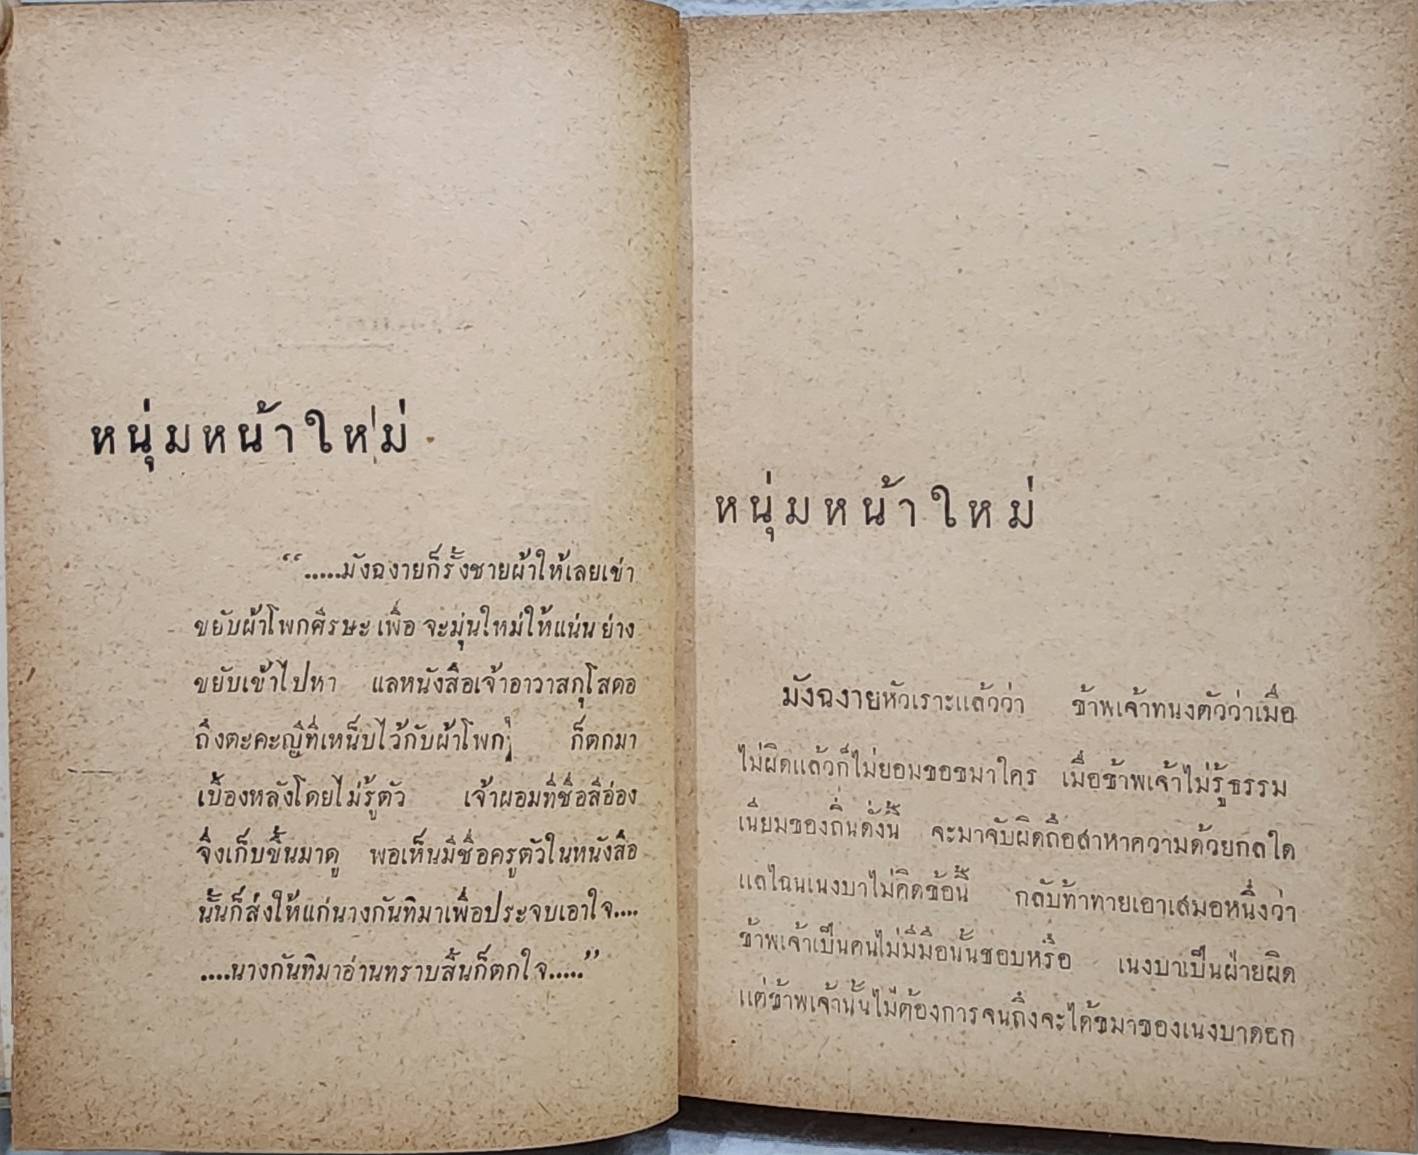 หนุ่มหน้าใหม่
“.....มังฉงายก็รั้งชายผ้าให้เลยเข่า
ขยับผ้าโพกศีรษะ เพื่อ จะมุ่นใหม่ให้แน่น ย่าง
ขยับเข้าไปหา แลหนังสือเจ้าอาวาสกุโสดอ
ถึงตะคะญีที่เหน็บไว้กับผ้าโพก ก็ตกมา
เบื้องหลังโดยไม่รู้ตัว เจ้าผอมที่ชื่อสิอ่อง
จึงเก็บขึ้นมาดู พอเห็นมีชื่อครูตัวในหนังสือ
นั้นก็ส่งให้แก่นางกันทิมาเพื่อประจบเอาใจ....
....นางกันทิมาอ่านทราบสิ้นก็ตกใจ.....”
หนุ่มหน้าใหม่
มังฉงายหัวเราะแล้วว่า ข้าพเจ้าทนงตัวว่าเมื่อ
ไม่ผิดแล้วก็ไม่ยอมขอขมาใคร เมื่อข้าพเจ้าไม่รู้ธรรม
เนียมของถิ่นดั่งนี้ จะมาจับผิดถือสาหาความด้วยกลใด
แลไฉนเนงบาไม่คิดข้อนี้ กลับท้าทายเอาเสมอหนึ่งว่า
ข้าพเจ้าเป็นคนไม่มีมือนั้นชอบหรือ เนงบาเป็นฝ่ายผิด
แต่ข้าพเจ้านั้นไม่ต้องการจนถึงจะได้ขมาของเนงบาดอก